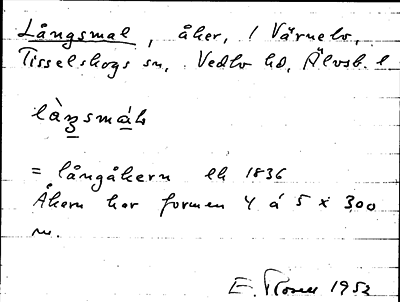 Långsmal, åker, 1 Värnebo,
Tisselskogs sn, Vedbo hd, Älvsb. l
= långåkern lh 1836
Åkern har formen 4 á 5 x 300
m.
E. 1952